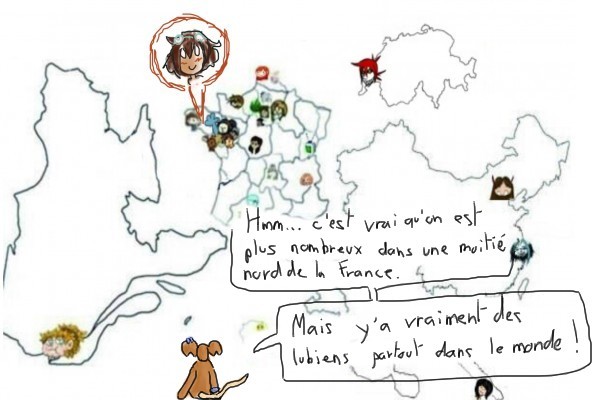 Hmm... c'est vrai qu'on est
plus nombreux dans une moitié
nord de la France.
Mais y'a vraiment des
lubiens partout dans le monde !